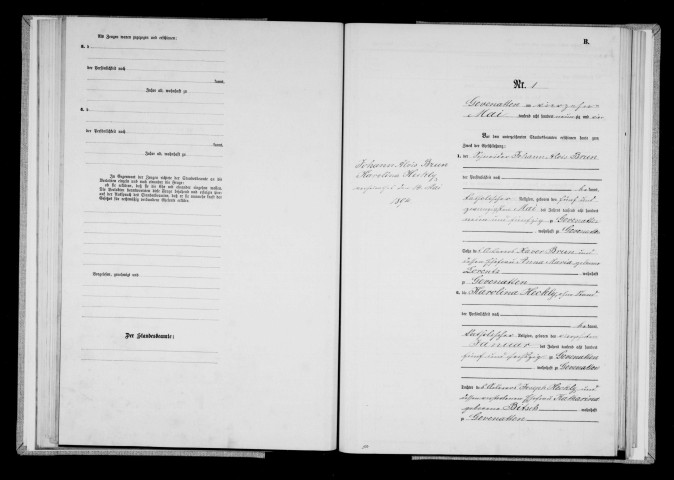 Als Zeugen waren zugezogen und erschienen:
3. d
der Persönlichkeit nach
kannt,
Jahre alt, wohnhaft zu
4. d
der Persönlichkeit nach
kannt,
Jahre alt, wohnhaft zu
In Gegenwart der Zeugen richtete der Standesbeamte an die
Verlobten einzeln und nach einander die Frage:
ob sie erklären, daß sie die Ehe mit einander eingehen wollen.
Die Verlobten beantworteten diese Frage bejahend und erfolgte hier-
auf der Ausspruch des Standesbeamten, daß er sie nunmehr kraft des
Gesetzes für rechtmäßig verbundene Eheleute erkläre.
Vorgelesen, genehmigt und
Der Standesbeamte:
B.
Johann Alois Brun
Karolina Heckly
14 Mai
Nr. 1
Gevenatten am vierzehn
Mai tausend acht hundert neunzig und vier
Vor dem unterzeichneten Standesbeamten erschienen heute zum
Zweck der Eheschließung:
1. der Johann Alois Brun
der Persönlichkeit nach
kannt,
katholischer Religion, geboren den fünf und
zwanzigsten Mai des Jahres tausend acht hundert
neun und fünfzig zu Gevenatten
, wohnhaft zu Gevenatten
Sohn de Xaver Brun und
dessen Ehefrau Anna Maria geborene
Lorentz wohnhaft
zu Gevenatten
2. die Karolina Heckly, ohne
der Persönlichkeit nach
kannt,
katholischer Religion, geboren den
Januar des Jahres tausend acht hundert
fünf und sechzig zu Gevenatten
, wohnhaft zu Gevenatten
Tochter de Joseph Heckly und
dessen Ehefrau Katharina
geborene wohnhaft
zu Gevenatten